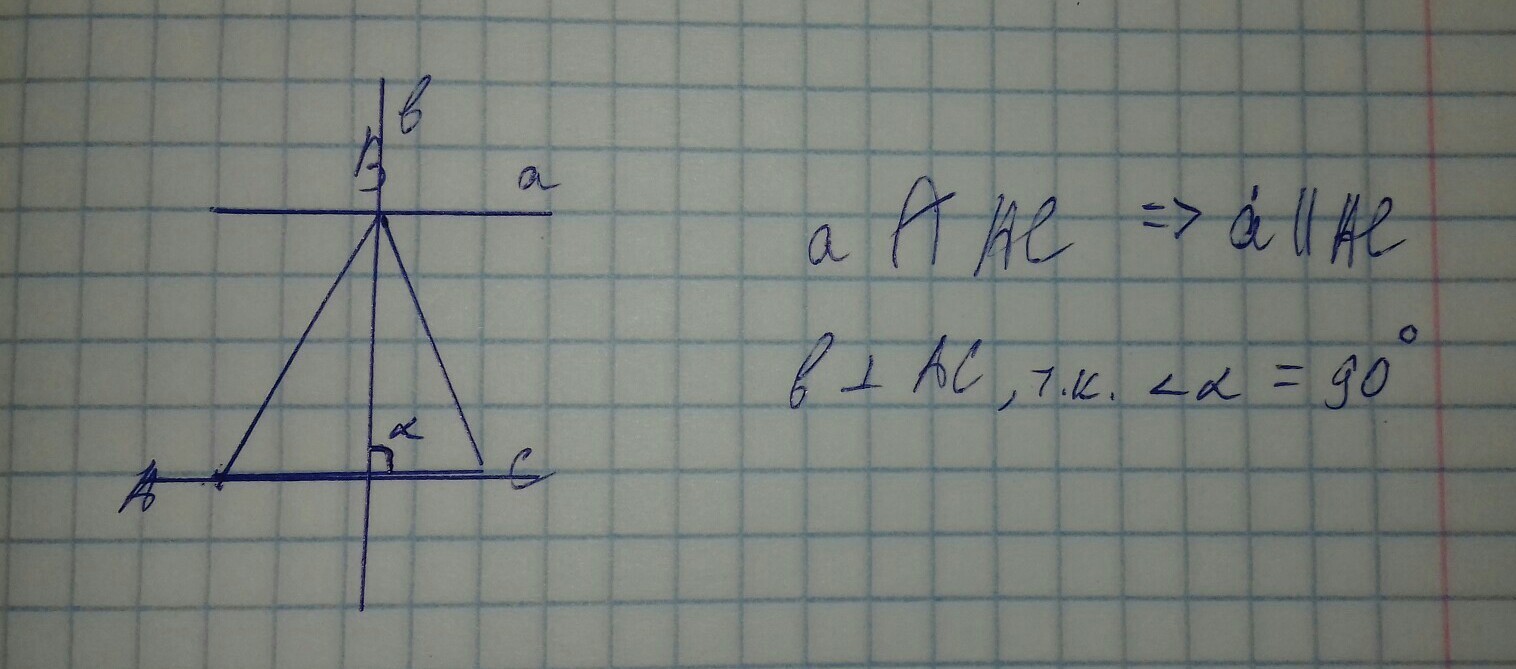 в
B
a
α
A
C
a ∩ AC => a || AC
в ⊥ AC, т.к. <α = 90°